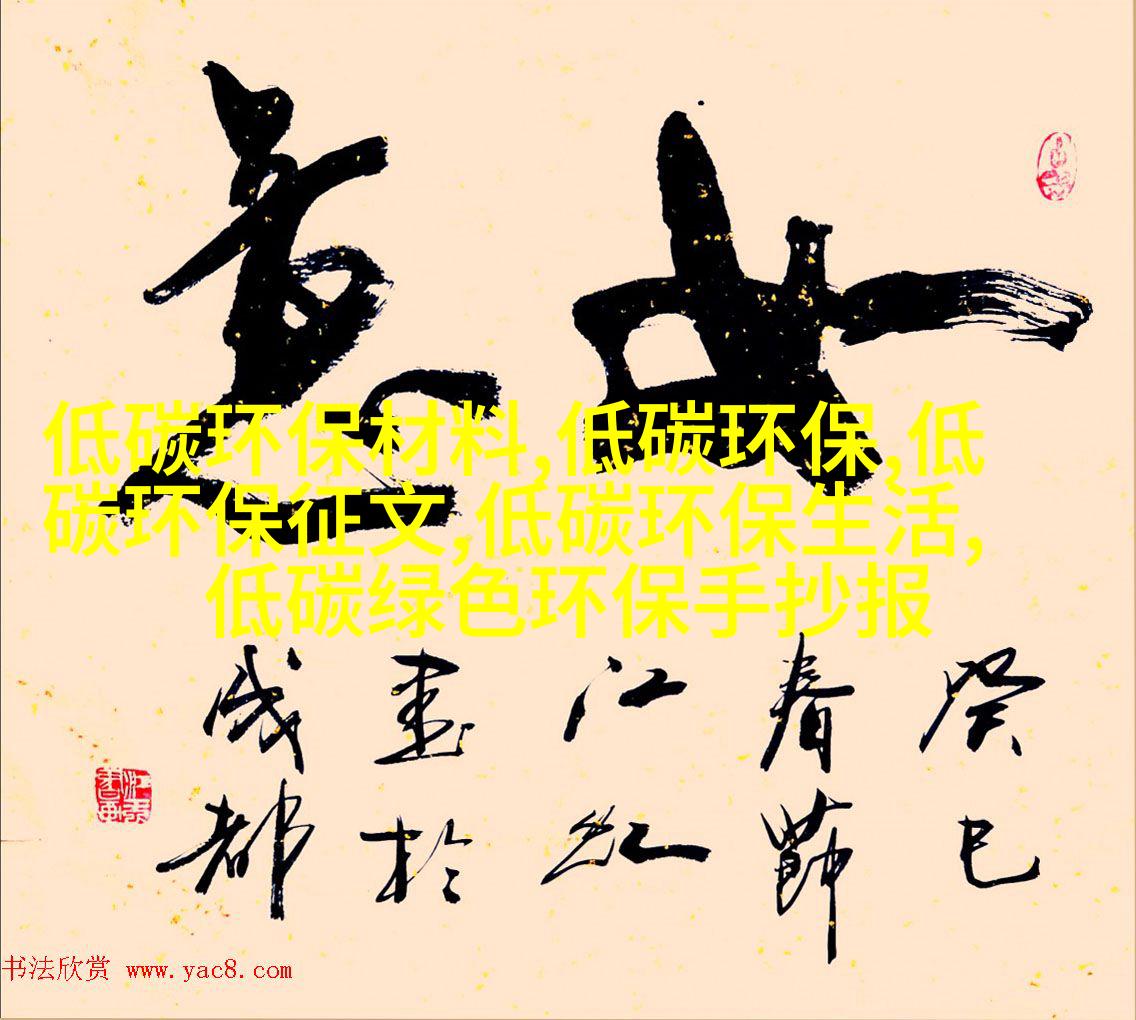 如意
低碳环保材料,低碳环保,低
碳环保征文,低碳环保生活,
低碳绿色环保手抄报
癸巳
春
江红
書於
成都
书法欣赏 www.yac8.com